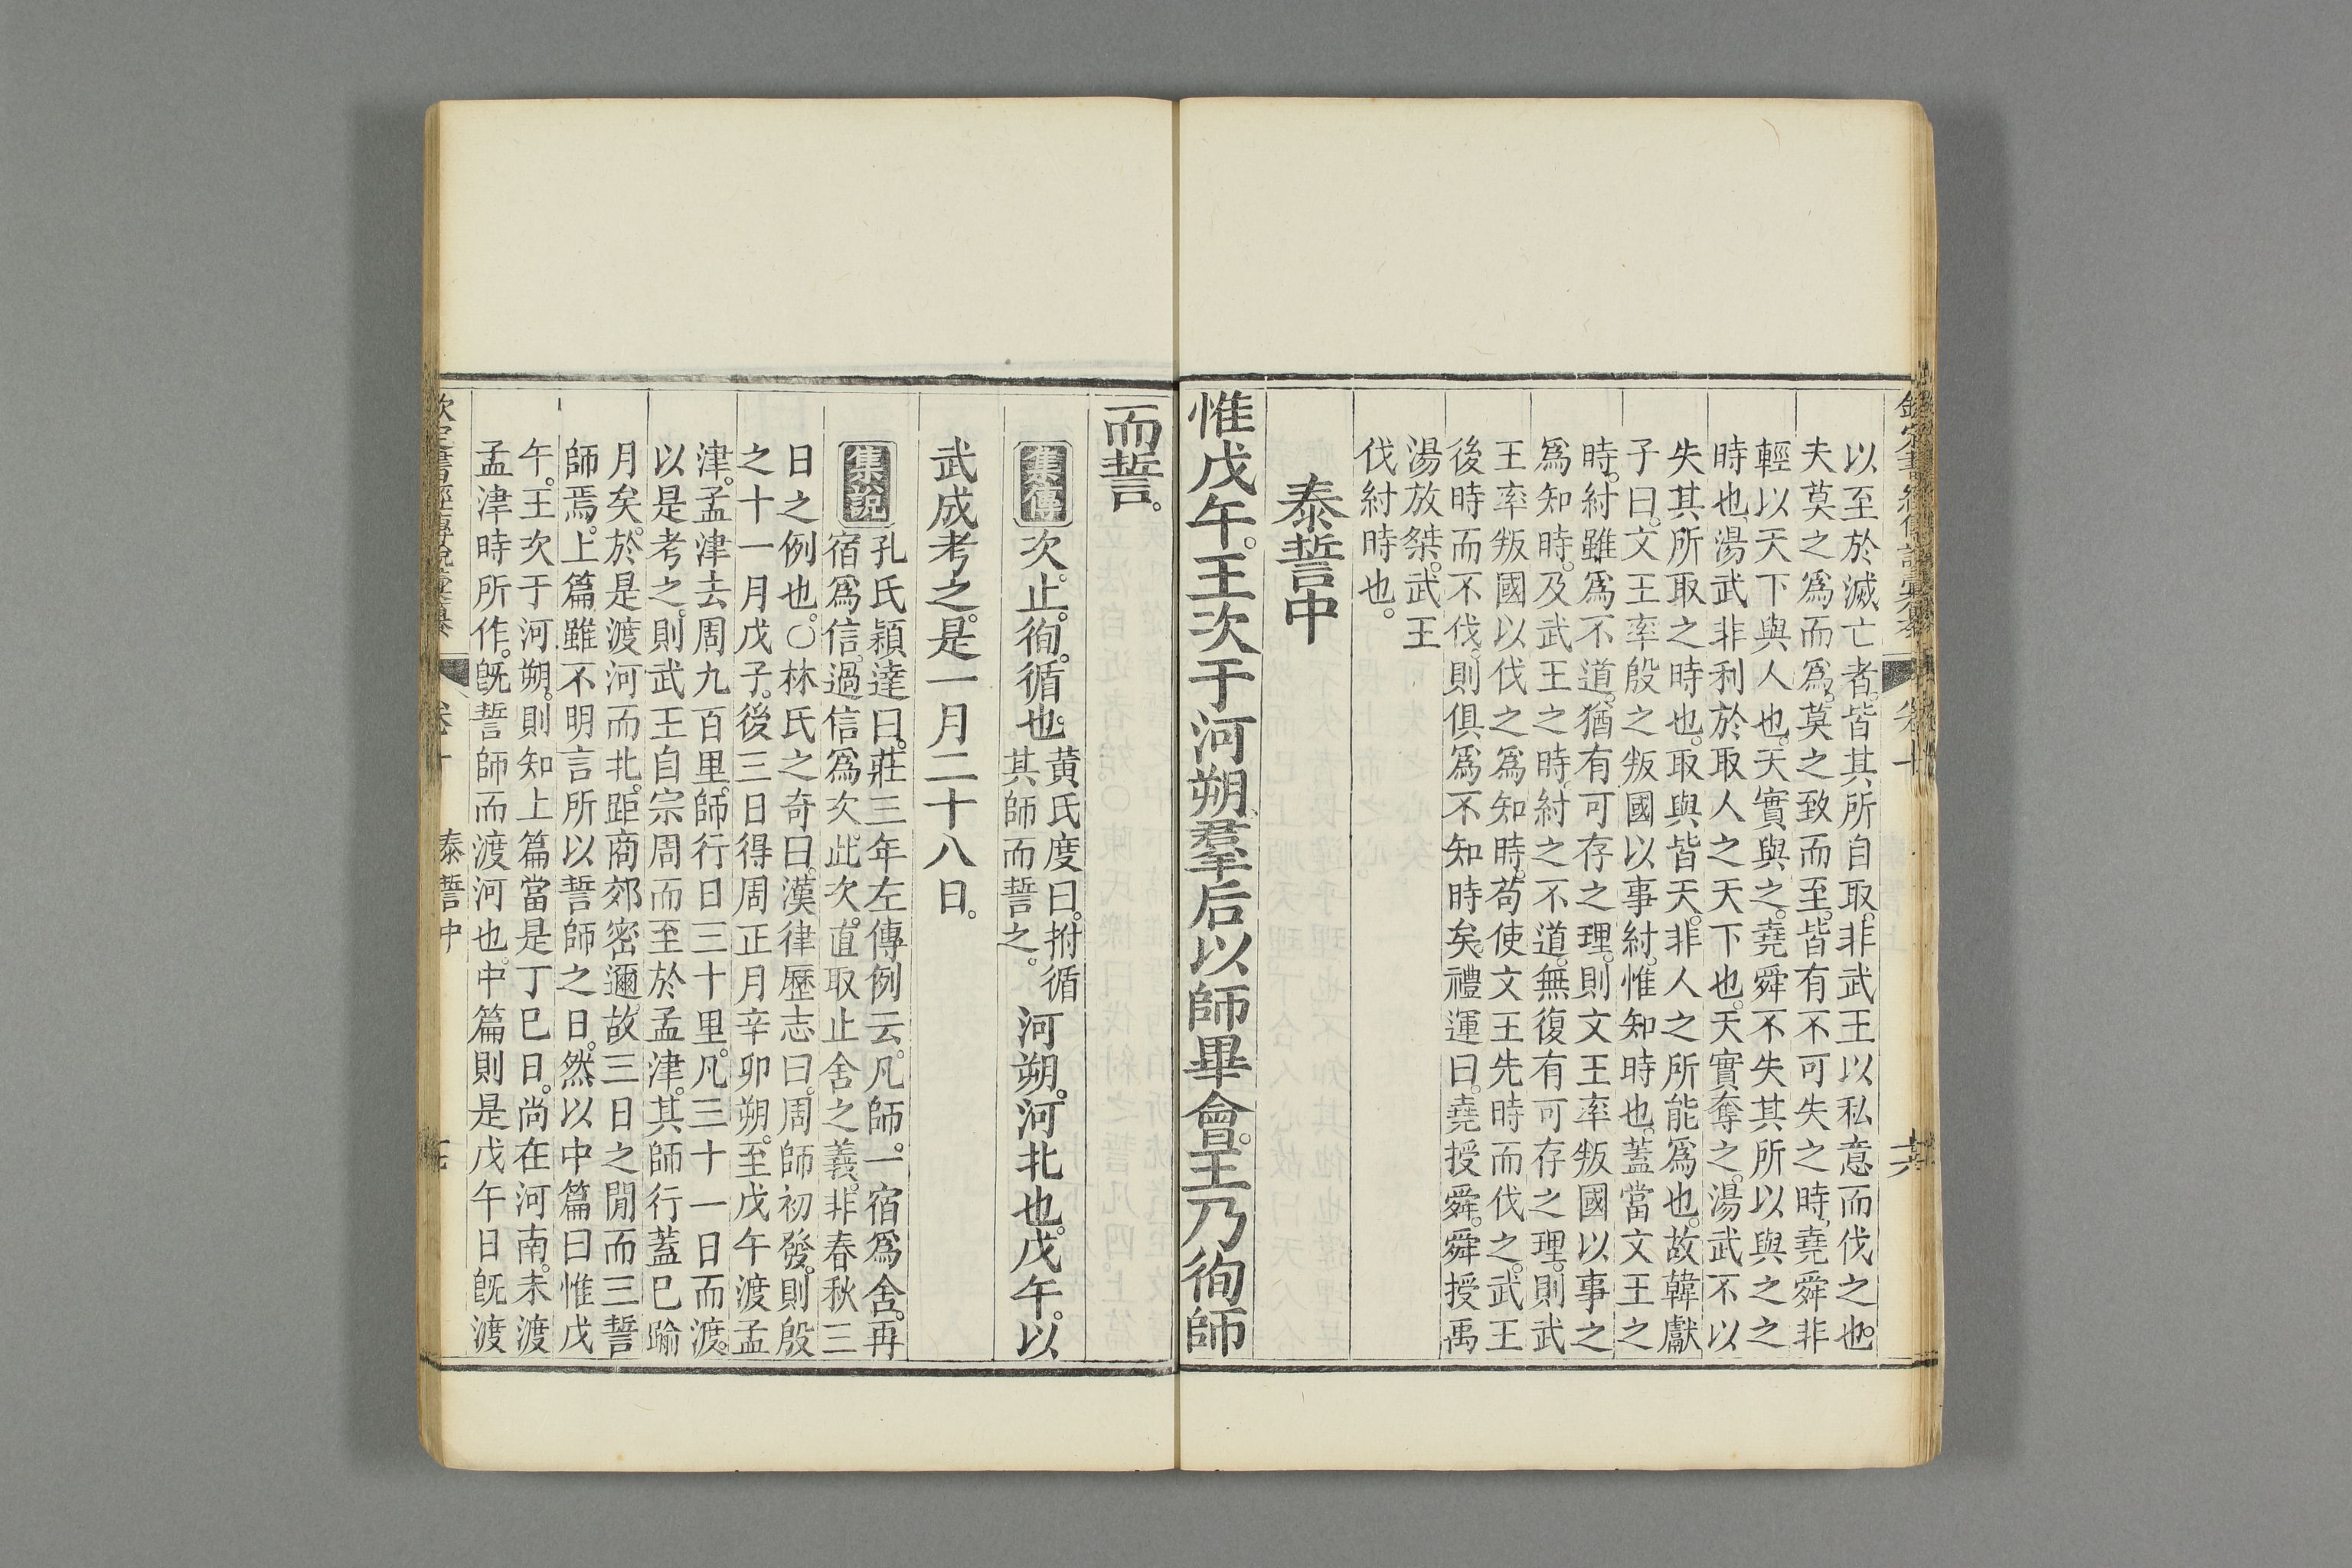 以至於滅亡者。皆其所自取。非武王以私意而伐之也。
夫莫之爲而爲。莫之致而至。皆有不可失之時。堯舜非
輕以天下與人也。天實與之。堯舜不失其所以與之之
時也。湯武非利於取人之天下也。天實奪之。湯武不以
失其所取之時也。取與皆天。非人之所能爲也。故韓獻
子曰。文王率殷之叛國以事紂。惟知時也。蓋當文王之
時。紂雖爲不道。猶有可存之理。則文王率叛國以事之
爲知時。及武王之時。紂之不道。無復有可存之理。則武
王率叛國以伐之爲知時。苟使文王先時而伐之。武王
後時而不伐。則俱爲不知時矣。禮運曰。堯授舜。舜授禹
湯放桀。武王
伐紂時也。
泰誓中
惟戊午。王次于河朔。羣后以師畢會。王乃徇師
而誓。
集傳 次。止。徇。循也。黃氏度曰。拊循
其師而誓之。 河朔。河北也。戊午。以
武成考之。是一月二十八日。
集說 孔氏穎達曰。莊三年左傳例云。凡師。一宿爲舍。再
宿爲信。過信爲次。此次。直取止舍之義。非春秋三
日之例也。〇林氏之奇曰。漢律歷志曰。周師初發。則殷
之十一月戊子。後三日得周正月辛卯朔。至戊午渡孟
津。孟津去周九百里。師行日三十里。凡三十一日而渡。
以是考之。則武王自宗周而至於孟津。其師行蓋已踰
月矣。於是渡河而北。距商郊密邇。故三日之閒而三誓
師焉。上篇雖不明言所以誓師之日。然以中篇曰惟戊
午。王次于河朔。則知上篇當是丁巳日。尚在河南。未渡
孟津時所作。旣誓師而渡河也。中篇則是戊午日旣渡
泰誓中